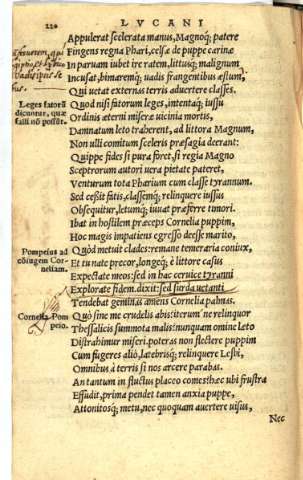 220 LVCANI
Appulerat scelerata manus, Magnoq́; patere
Fingens regna Phari, celsæ de puppe carinæ
In paruam iubet ire ratem, littusq́; malignum
Incusat, bimaremq́; uadis frangentibus æstum,
Qui uetat externas terris aduertere classes.
Leges fatorũ Quod nisi fatorum leges, intentaq́; iussu
dicuntur, quæ Ordinis æterni miseræ uicinia mortis,
falli nõ possũt. Damnatum leto traherent, ad littora Magnum,
Non ulli comitum sceleris præsagia deerant:
Quippe fides si pura foret, si regia Magno
Sceptrorum autori uera pietate pateret,
Venturum tota Pharium cum classe tyrannum.
Sed cessit fatis, classemq́; relinquere iussus
Obsequitur, letumq́; iuuat præferre timori.
Ibat in hostilem præceps Cornelia puppim,
Hoc magis impatiens egresso deesse marito,
Pompeius ad Quòd metuit clades: remane temeraria coniux,
cõiugem Cor- Et tu nate precor, longeq́; è littore casus
neliam. Expectate meos: sed in hac ceruice tyranni
Explorate fidem. dixit: sed surda uetanti
Tendebat geminas amens Cornelia palmas.
Cornelia Pom- Quò sine me crudelis abis: iterum' ne relinquor
peio. Thessalicis summota malis: nunquam omine læto
Distrahimur miseri. poteras non flectere puppim
Cum fugeres aliò, latebrisq́; relinquere Lesbi,
Omnibus à terris si nos arcere parabas.
An tantum in fluctus placeo comes: hæc ubi frustra
Effudit, prima pendet tamen anxia puppe,
Attonitosq́; metu, nec quoquam auertere uisus,
Nec